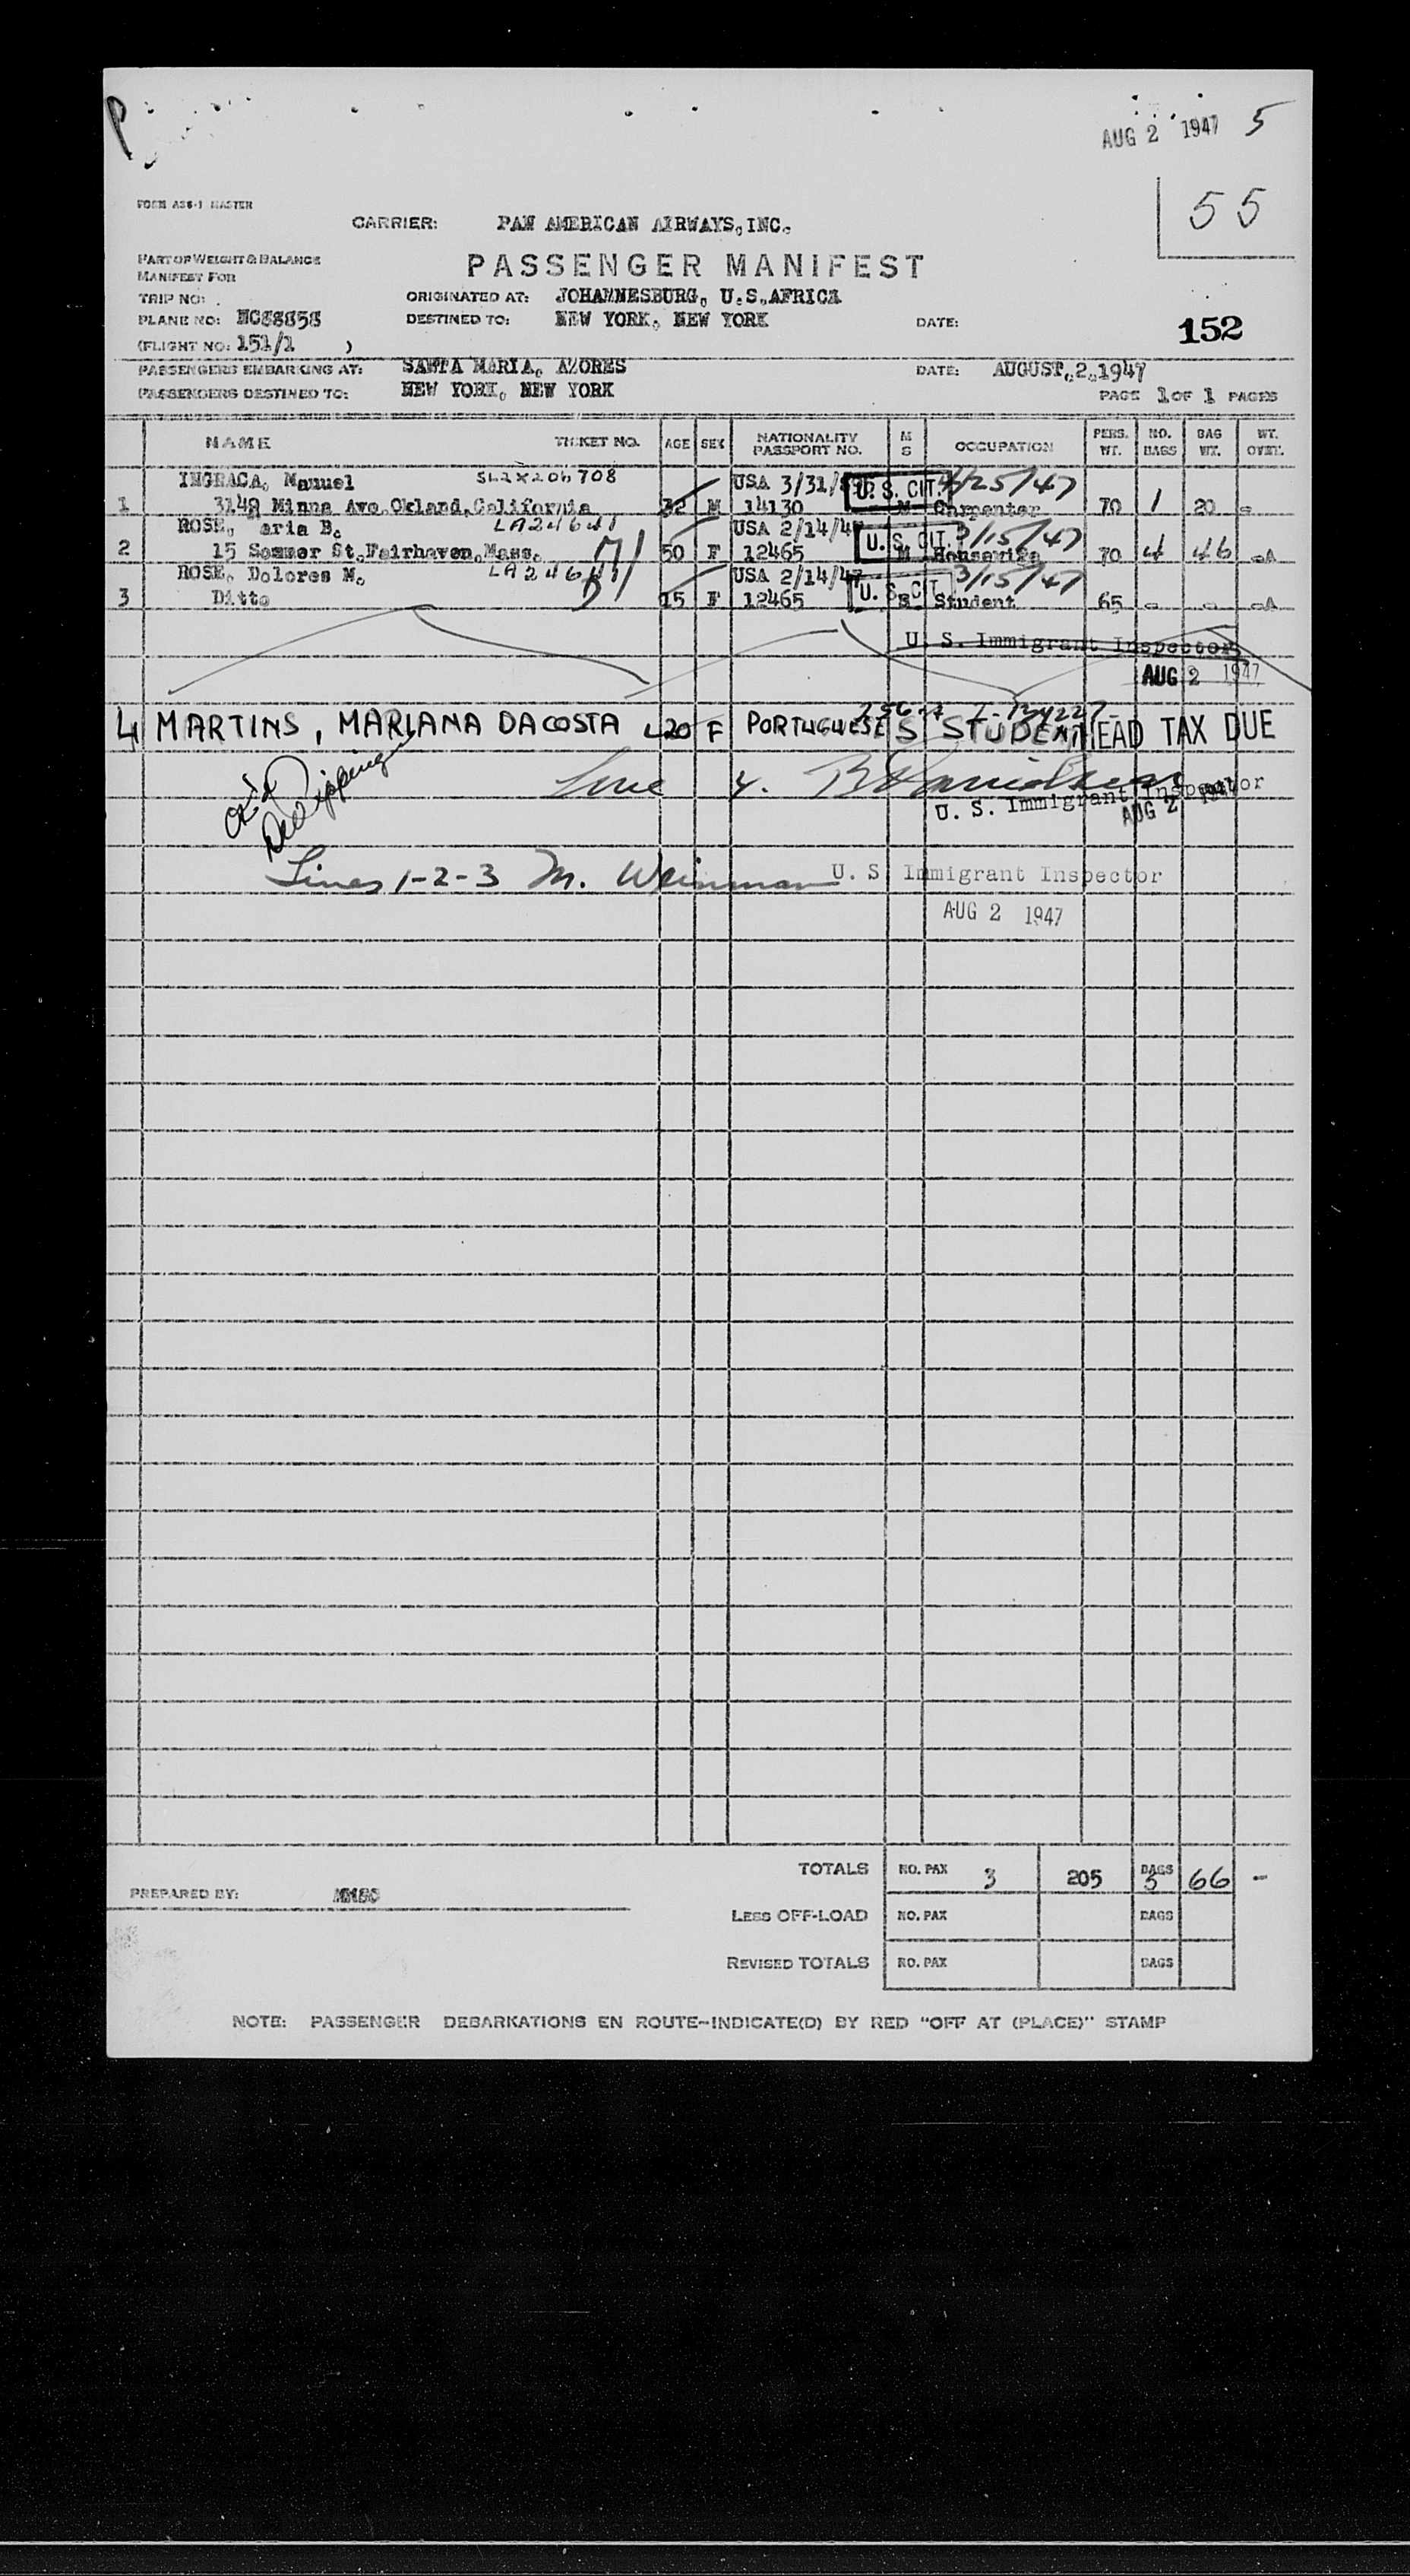 P
AUG 2 1947 5
55
FORM AS6-1 MASTER
CARRIER: PAN AMERICAN AIRWAYS, INC.
PART OF WEIGHT & BALANCE
MANIFEST FOR
PASSENGER MANIFEST
TRIP NO:
ORIGINATED AT: JOHANNESBURG, U.S.AFRICA
PLANE NO: NC88858
DESTINED TO: NEW YORK, NEW YORK
DATE: 152
(FLIGHT NO: 151/1 )
PASSENGERS EMBARKING AT: SANTA MARIA, AZORES
DATE: AUGUST,2,1947
PASSENGERS DESTINED TO: NEW YORK, NEW YORK
PAGE 1 OF 1 PAGES
NAME TICKET NO. AGE SEX NATIONALITY PASSPORT NO. M S OCCUPATION PERS. WT. NO. BAGS BAG WT. WT. OVER.
INGRACA, Manuel 708 USA 3/31/ U. S. CIT. 4/25/47
1 3149 Minna Ave,Okland,California 32 M 14130 M Carpenter 70 1 20 -
ROSE, aria B. LA24641 USA 2/14/47 U. S. CIT. 3/15/47
2 15 Sommer St.Fairhaven,Mass. 50 F 12465 M Housewife 70 4 46 -A
ROSE, Dolores M. LA24641 USA 2/14/47 U. S. CIT. 3/15/47
3 Ditto 15 F 12465 S Student 65 - - -A
U. S. Immigrant Inspector
AUG 2 1947
4 MARTINS, MARIANA DACOSTA 20 F PORTUGUESE S STUDENT HEAD TAX DUE
Line 4.
U. S. Immigrant Inspector
AUG 2 1947
Lines 1-2-3 M. Weinman U. S. Immigrant Inspector
AUG 2 1947
TOTALS NO. PAX 3 205 BAGS 5 66 -
PREPARED BY:
LESS OFF-LOAD NO. PAX BAGS
REVISED TOTALS NO. PAX BAGS
NOTE: PASSENGER DEBARKATIONS EN ROUTE-INDICATE(D) BY RED "OFF AT (PLACE)" STAMP